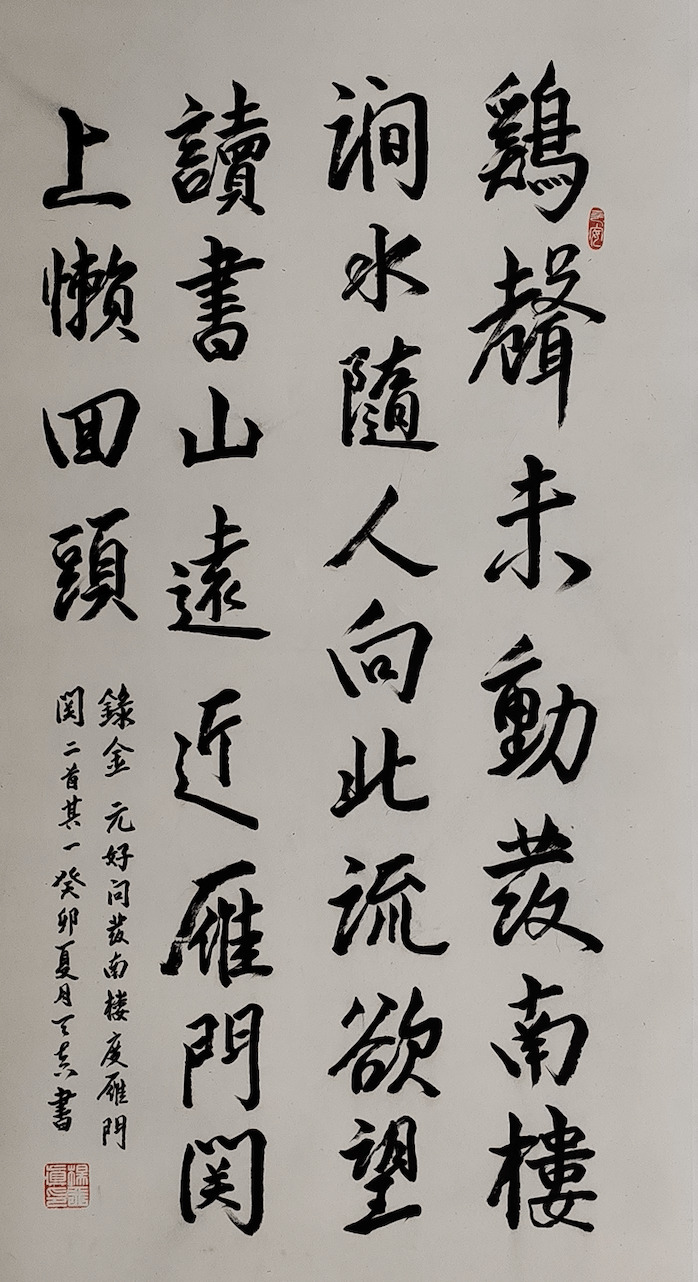 鷄聲未動發南樓
澗水隨人向北流欲望
讀書山遠近雁門関
上懶回頭
錄金元好问發南樓度雁門
関二首其一癸卯夏月天真書